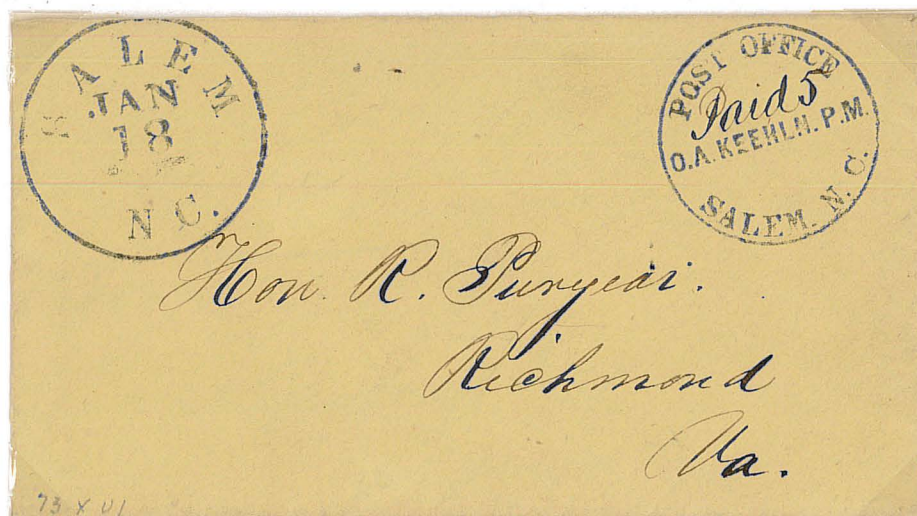 SALEM
JAN
18
N C.
POST OFFICE
Paid 5
O.A. KEEHLN. P.M.
SALEM. N. C.
Hon. R. Puryear.
Richmond
Va.
73 X U1